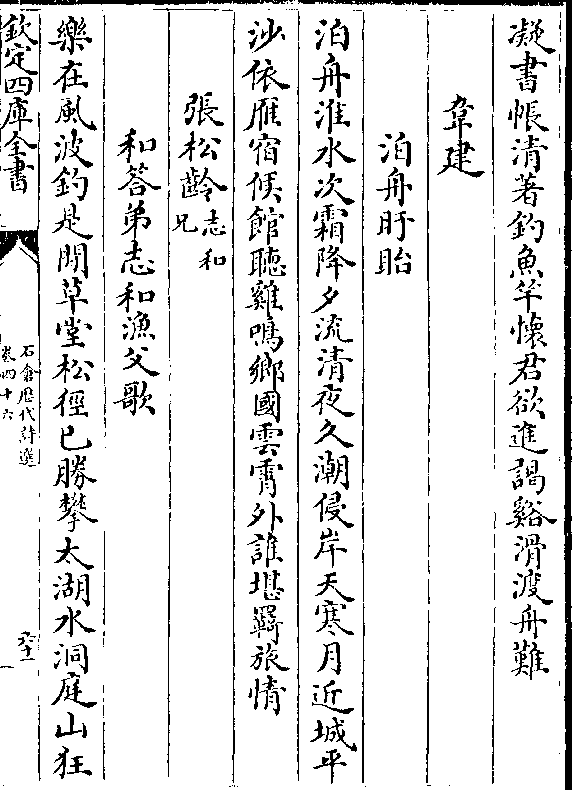 凝書帳清著釣魚竿懷君欲進謁谿滑渡舟難
韋建
泊舟盱眙
泊舟淮水次霜降夕流清夜久潮侵岸天寒月近城平
沙依雁宿候館聽雞鳴鄉國雲霄外誰堪羇旅情
張松齡志和兄
和答弟志和漁父歌
樂在風波釣是閒草堂松徑已勝攀太湖水洞庭山狂
欽定四庫全書
石倉歷代詩選
卷四十六